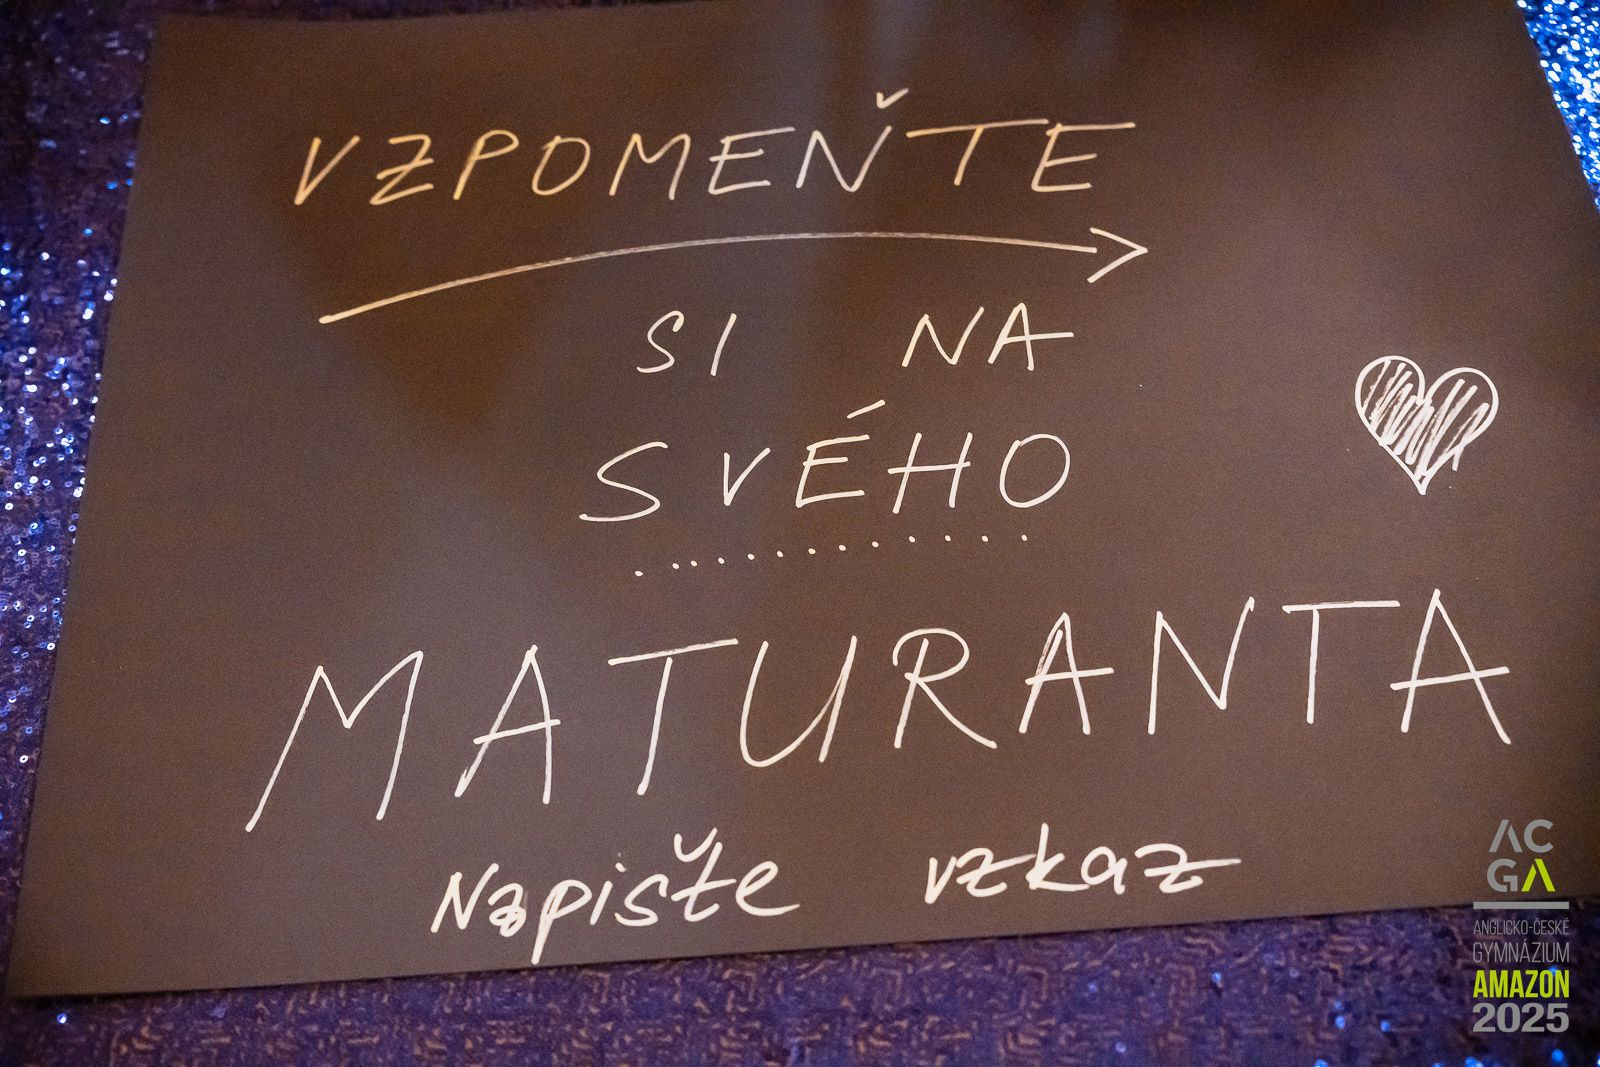 VZPOMEŇTE
SI NA
SVÉHO
MATURANTA
Napište vzkaz
ACGA
ANGLICKO-ČESKÉ
GYMNÁZIUM
AMAZON
2025